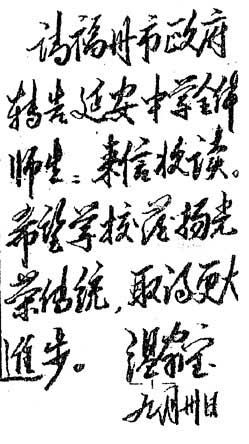 请福州市政府
转告延安中学全体
师生：来信收读。
希望学校发扬光
荣传统，取得更大
进步。温家宝
九月卅日